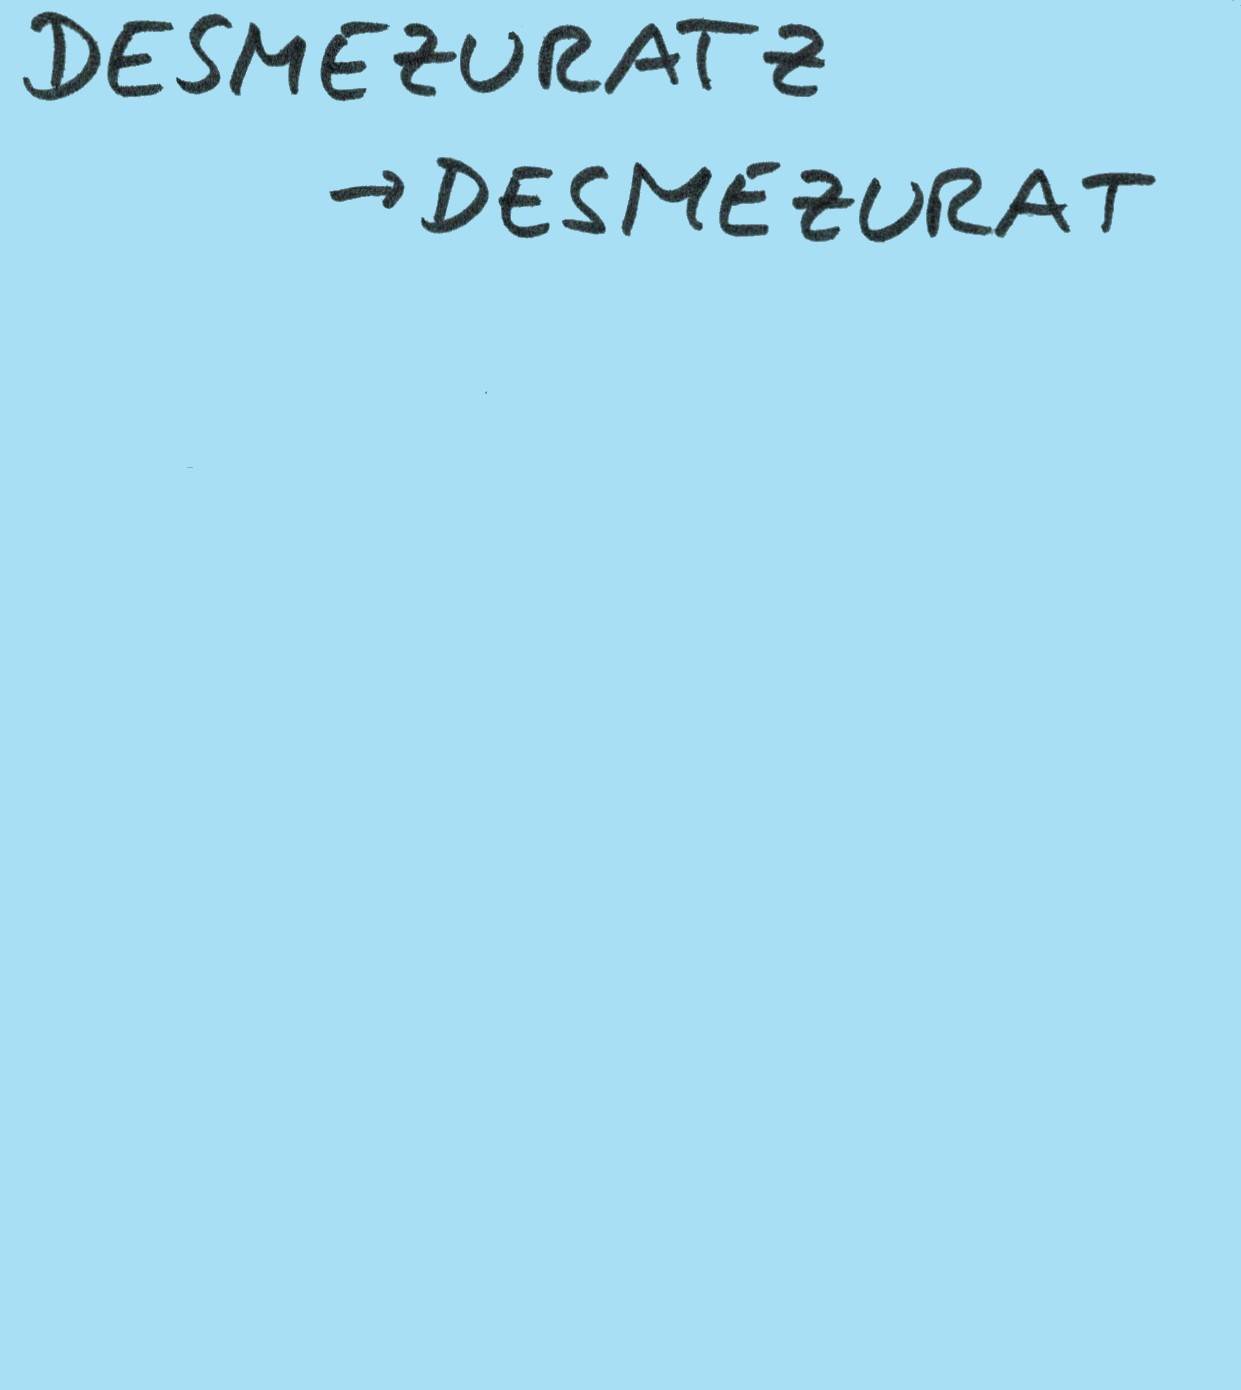 DESMEZURATZ
→ DESMEZURAT